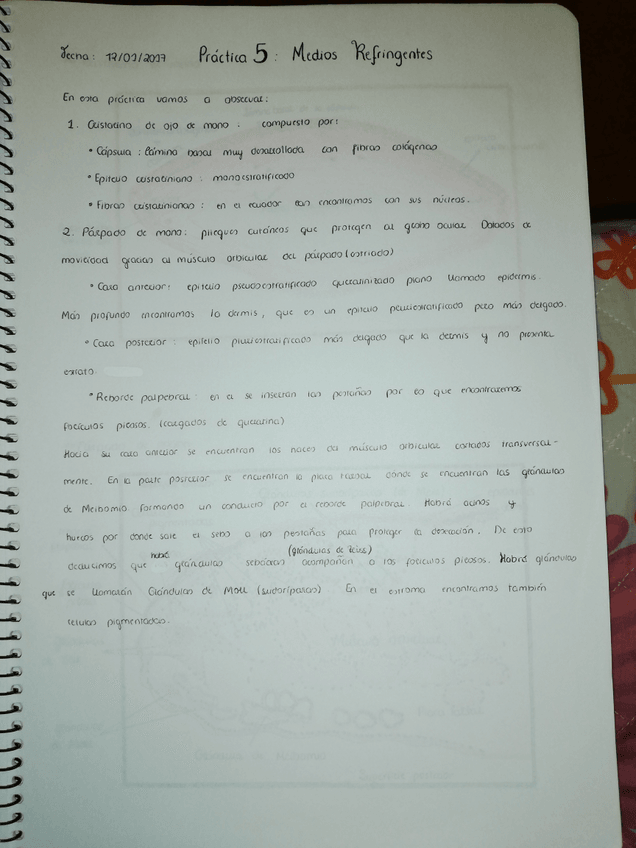 Fecha: 17/01/2017 Práctica 5: Medios Refringentes
En esta práctica vamos a observar:
1. Cristalino de ojo de mono: compuesto por:
• Cápsula: Lámina basal muy desarrollada con fibras colágenas
• Epitelio cristaliniano: monoestratificado
• Fibras cristalinianas: en el ecuador las encontramos con sus núcleos.
2. Párpado de mono: pliegues cutáneos que protegen al globo ocular. Dotados de
movilidad gracias al músculo orbicular del párpado (estriado)
• Cara anterior: epitelio pseudoestratificado queratinizado plano llamado epidermis.
Más profundo encontramos la dermis, que es un epitelio pluriestratificado pero más delgado.
• Cara posterior: epitelio pluriestratificado más delgado que la dermis y no presenta
estrato
• Reborde palpebral: en él se insertan las pestañas por lo que encontraremos
folículos pilosos. (cargados de queratina)
Hacia su cara anterior se encuentran los haces del músculo orbicular cortados transversal-
mente. En la parte posterior se encuentran la placa tarsal donde se encuentran las glándulas
de Meibomio formando un conducto por el reborde palpebral. Habrá acinos y
huecos por donde sale el sebo a las pestañas para proteger la desecación. De esto
deducimos que habrá glándulas sebáceas (glándulas de Zeiss) acompañan a los folículos pilosos. Habrá glándulas
que se llamarán Glándulas de Moll (sudoríparas). En el estroma encontramos también
células pigmentadas.